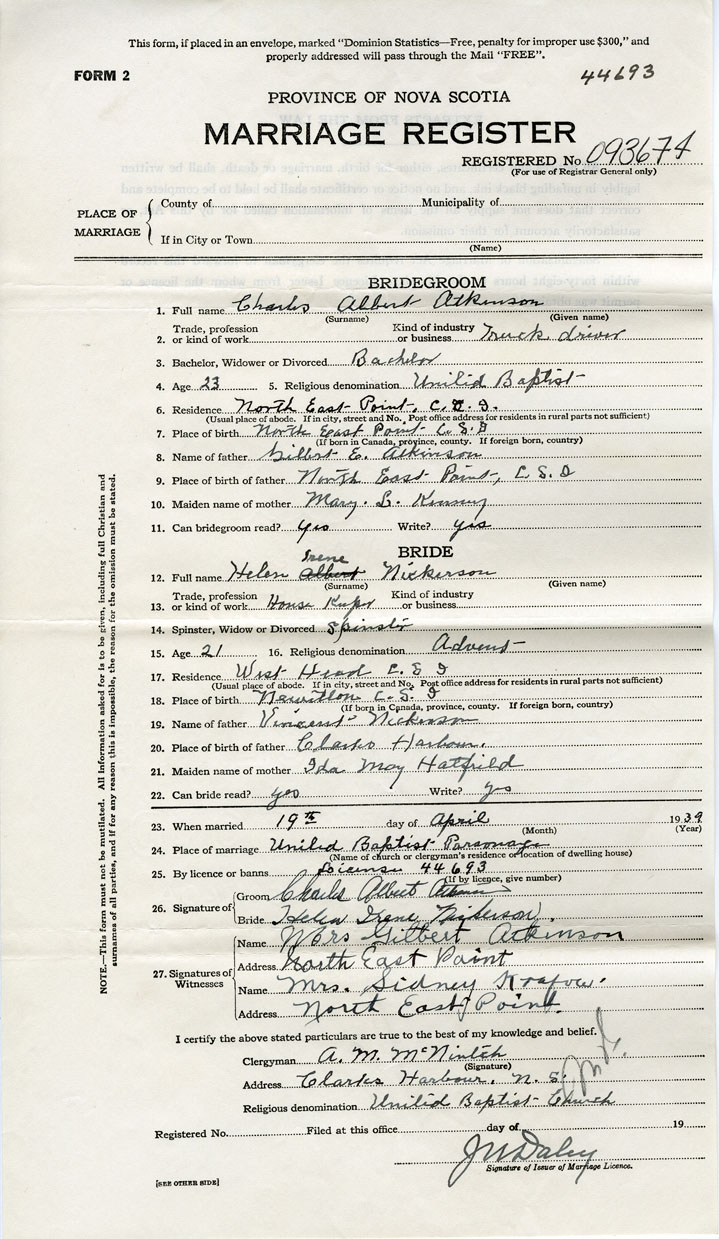 This form, if placed in an envelope, marked "Dominion Statistics—Free, penalty for improper use $300," and
properly addressed will pass through the Mail "FREE".
FORM 2
44693
PROVINCE OF NOVA SCOTIA
MARRIAGE REGISTER
REGISTERED No. 093674
(For use of Registrar General only)
PLACE OF MARRIAGE
County of Municipality of
If in City or Town
(Name)
BRIDEGROOM
1. Full name Charles Albert Atkinson
(Surname) (Given name)
Trade, profession Kind of industry
2. or kind of work or business Truck driver
3. Bachelor, Widower or Divorced Bachelor
4. Age 23 5. Religious denomination United Baptist
6. Residence North East Point, C. S. I.
(Usual place of abode. If in city, street and No. Post office address for residents in rural parts not sufficient)
7. Place of birth North East Point C. S. I
(If born in Canada, province, county. If foreign born, country)
8. Name of father Gilbert E. Atkinson
9. Place of birth of father North East Point, C S I
10. Maiden name of mother Mary L. Kenney
11. Can bridegroom read? Yes Write? yes
BRIDE
Irene
12. Full name Helen Albert Nickerson
(Surname) (Given name)
Trade, profession Kind of industry
13. or kind of work House Keeper or business
14. Spinster, Widow or Divorced Spinster
15. Age 21 16. Religious denomination Advent
17. Residence West Head C. S I
(Usual place of abode. If in city, street and No. Post office address for residents in rural parts not sufficient)
18. Place of birth Newellton C. S. I
(If born in Canada, province, county. If foreign born, country)
19. Name of father Vincent Nickerson
20. Place of birth of father Clarks Harbour.
21. Maiden name of mother Ida May Hatfield
22. Can bride read? yes Write? yes
23. When married 19th day of April 1939
(Month) (Year)
24. Place of marriage United Baptist Parsonage
(Name of church or clergyman's residence or location of dwelling house)
25. By licence or banns License 44693
(If by licence, give number)
26. Signature of
Groom Charles Albert Atkinson
Bride Helen Irene Nickerson.
27. Signatures of Witnesses
Name Mrs Gilbert Atkinson
Address North East Point
Name Mrs. Sidney
Address North East Point.
I certify the above stated particulars are true to the best of my knowledge and belief.
Clergyman A. M. McNintch
(Signature)
Address Clarks Harbour, N. S.
Religious denomination United Baptist Church
Registered No. Filed at this office day of 19
Signature of Issuer of Marriage Licence.
[SEE OTHER SIDE]
NOTE.—This form must not be mutilated. All information asked for is to be given, including full Christian and
surnames of all parties, and if for any reason this is impossible, the reason for the omission must be stated.